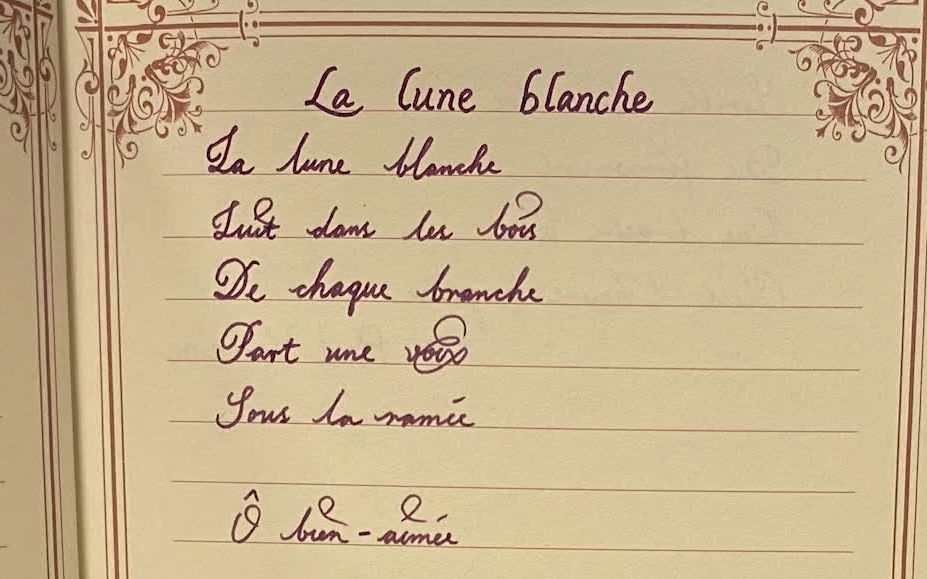 La lune blanche
La lune blanche
Luit dans les bois
De chaque branche
Part une voix
Sous la ramée
Ô bien-aimée